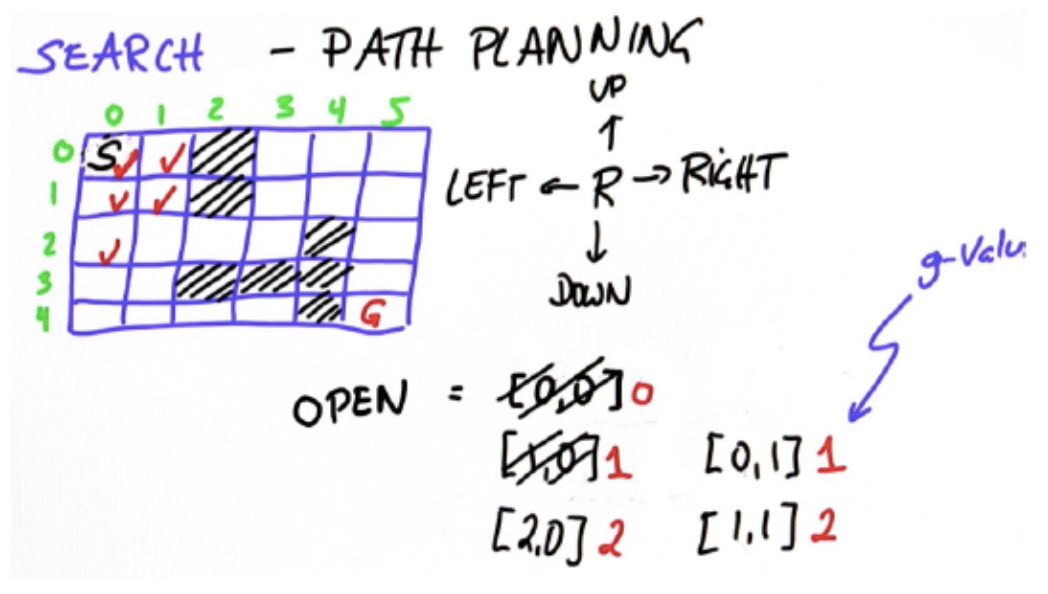 SEARCH - PATH PLANNING
UP
0 1 2 3 4 5
0 S
LEFT ← R → RIGHT
1
2
3
DOWN
4 G
g-Valu
OPEN = [0,0] 0
[1,0] 1 [0,1] 1
[2,0] 2 [1,1] 2